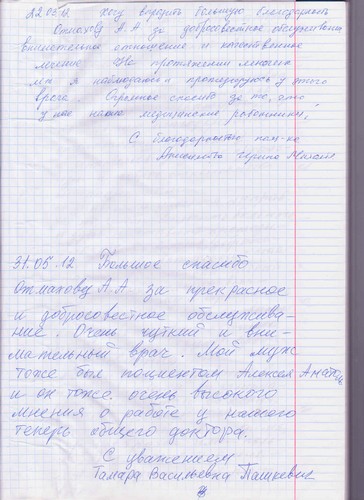 22.05.12. Хочу выразить большую благодарность
Отмахову А.А. за добросовестное обслуживание,
внимательное отношение и качественное
лечение. На протяжении многих
лет я наблюдаюсь и процедируюсь у этого
врача. Огромное спасибо за то, что
у нас такие медицинские работники,
С благодарностью
31.05.12 Большое спасибо
Отмахову А.А. за прекрасное
и добросовестное обслужива-
ние. Очень чуткий и вни-
мательный врач. Мой муж
тоже был пациентом Алексея Анатол
и он тоже очень высокого
мнения о работе у нашего
теперь общего доктора.
С уважением
Тамара Васильевна Пашкевич